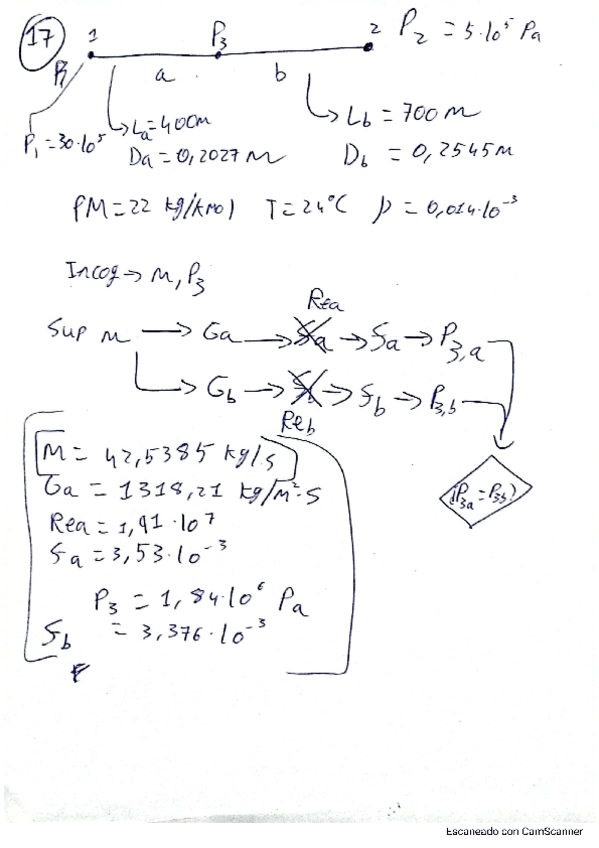 17
1 P3 2 P2 = 5·10⁵ Pa
P1 a b
P1 = 30·10⁵ La = 400m Lb = 700 m
Da = 0,2027 m Db = 0,2545 m
PM = 22 kg/kmol T = 24°C μ = 0,014·10⁻³
Incog → m, P3
Rea
Sup m → Ga → fa → P3,a
→ Gb → fb → P3,b
Reb
m = 42,5385 kg/s
Ga = 1318,21 kg/m²·s
¿P3a = P3b?
Rea = 1,91·10⁷
fa = 3,53·10⁻³
P3 = 1,84·10⁶ Pa
fb = 3,376·10⁻³
Escaneado con CamScanner